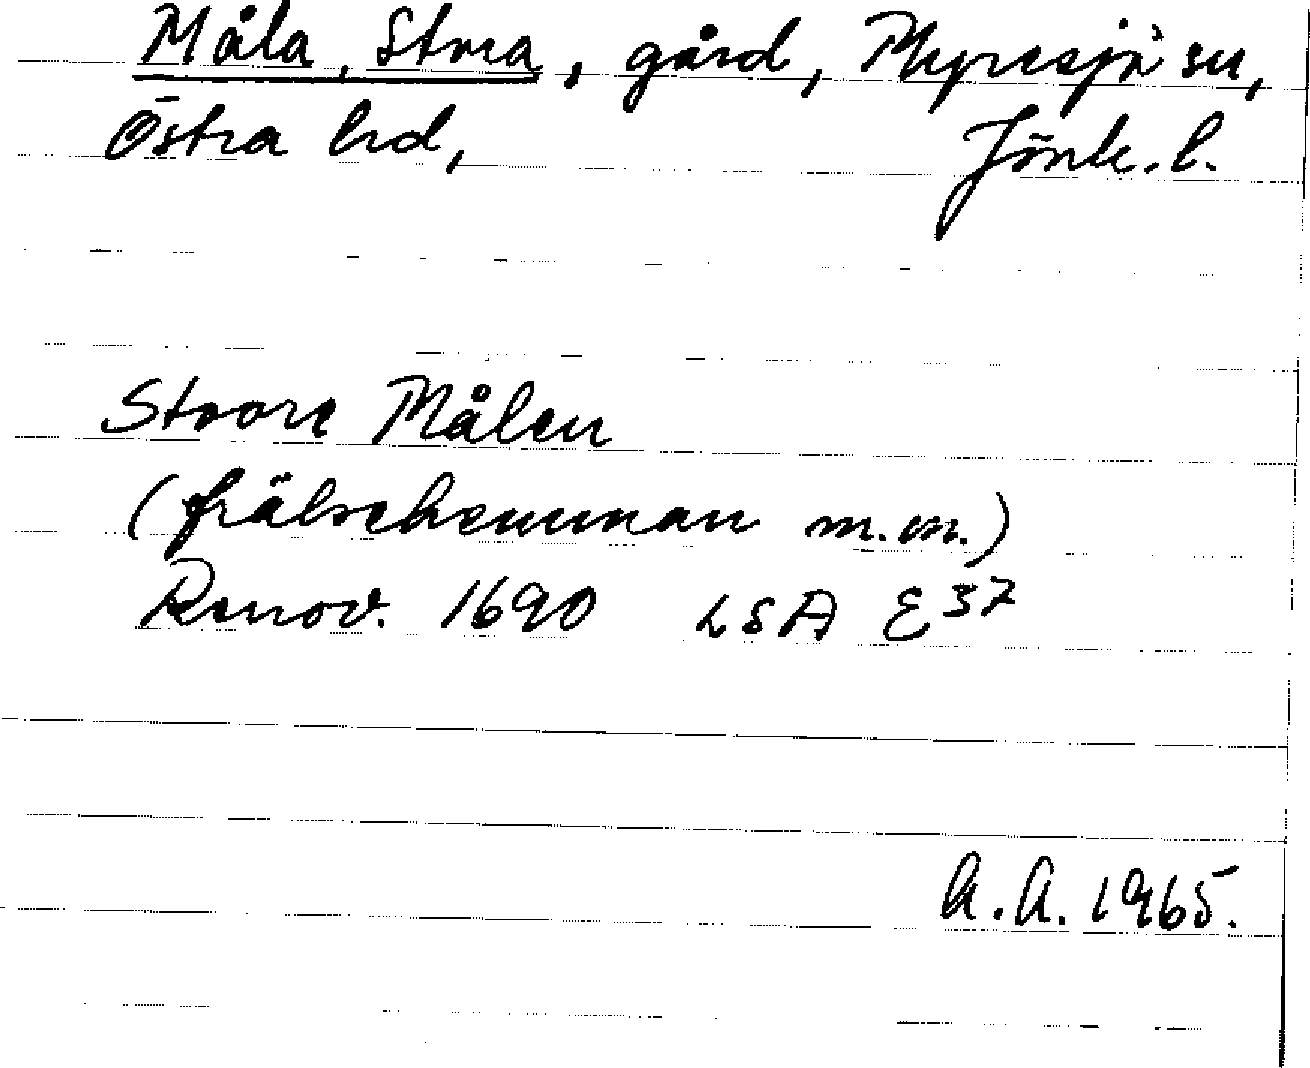 Måla, Stora, gård, Myresjö sn,
Östra hrd, Jönk. l.
Stoore Målen
(frälsehemman m.m.)
Renov. 1690 LSA E 37
A.A. 1965.